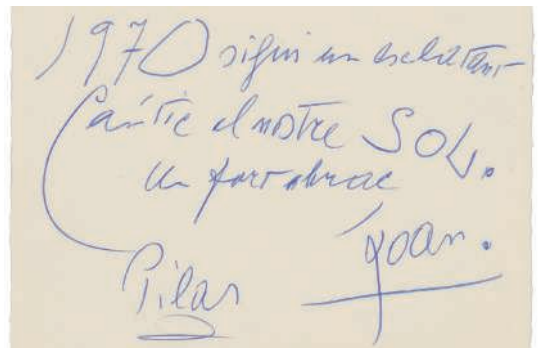 1970 sigui un esclatant
Càntic al nostre SOL.
Un fort abraç
Joan.
Pilar